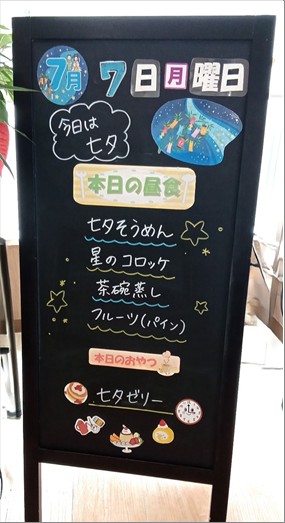 7月 7日月曜日
今日は
七夕
本日の昼食
七夕そうめん
星のコロッケ
茶碗蒸し
フルーツ(パイン)
本日のおやつ
七夕ゼリー